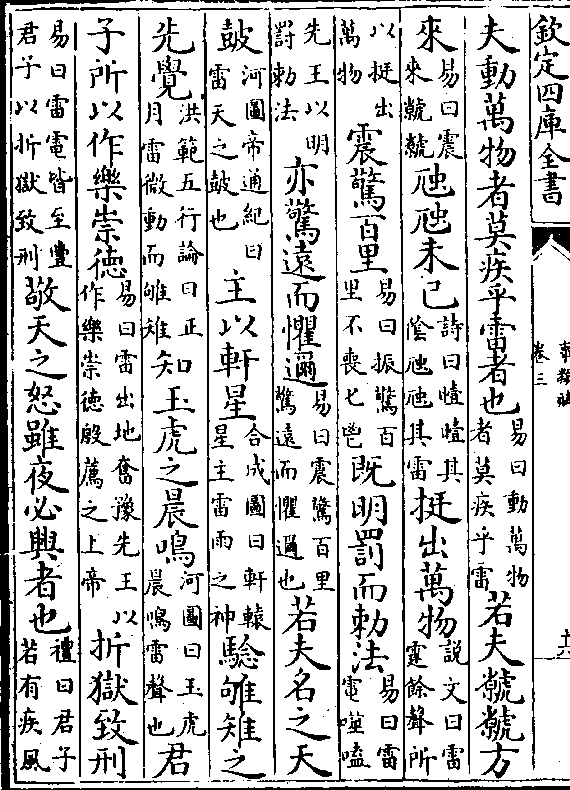 欽定四庫全書
事類賦
卷三
十六
夫動萬物者莫疾乎雷者也易曰動萬物者莫疾乎雷若夫虩虩方
來易曰震來虩虩虺虺未已詩曰曀曀其隂虺虺其雷挺出萬物說文曰雷霆餘聲所
以挺出萬物震驚百里易曰振驚百里不喪匕鬯既明罰而勑法易曰雷電噬嗑
先王以明罰勑法亦驚遠而懼邇易曰震驚百里驚遠而懼邇也若夫名之天
皷河圖帝通紀曰雷天之皷也主以軒星合成圖曰軒轅星主雷雨之神驗雊雉之
先覺洪範五行論曰正月雷微動而雊雉知玉虎之晨鳴河圖曰玉虎晨鳴雷聲也君
子所以作樂崇德易曰雷出地奮豫先王以作樂崇德殷薦之上帝折獄致刑
易曰雷電皆至豐君子以折獄致刑敬天之怒雖夜必興者也禮曰君子若有疾風